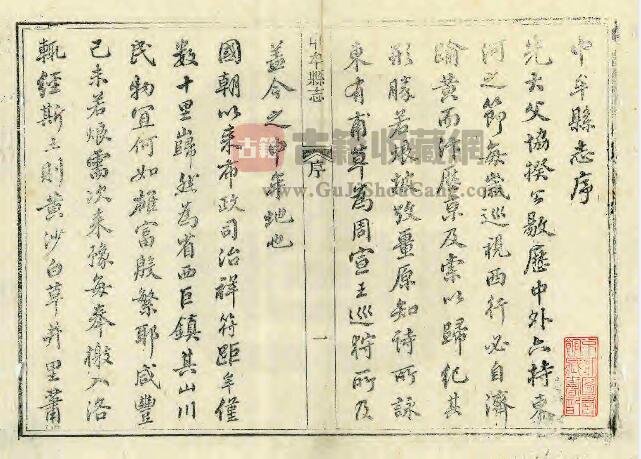 中牟縣志序
先大父協揆公敭歷中外亦持東
河之節每歲巡視西行必自濟
踰黃而汴歷京及索以歸紀其
形勝若烺披攷畺原知詩所詠
東有甫草為周宣王巡狩所及
蓋今之中牟地也
中牟縣志 序 一
國朝以來布政司治祥符距牟僅
數十里巋然為省西巨鎮其山川
民物宜何如雄富殷繁耶咸豐
己未若烺需次來豫每奉檄入洛
輒經斯土則黃沙白草井里蕭
古籍
古籍收藏網
www.GuJiShouCang.com